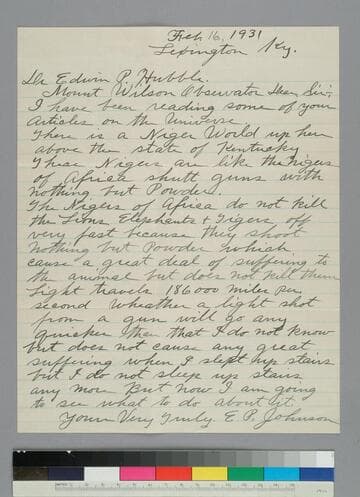 Feb 16, 1931
Lexington Ky.
Dr Edwin P. Hubble.
Mount Wilson Observator Dear Sir:
I have been reading some of your
Articles on the Universe
There is a Niger World up her
above the state of Kentucky
These Nigers are like the Nigers
of Africa shutt guns with
nothing but Powder.
The Nigers of Africa do not kill
the Lions Elephants & Tigers off
very fast because they shoot
nothing but Powder which
cause a great deal of suffering to
the animal but does not kill them
Light travels 186000 miles per
second Wheather a light shot
from a gun will go any
quicker then that I do not know
but does not cause any great
suffering when I slept up stairs
but I do not sleep up stairs
any more But now I am going
to see what to do about it.
Yours Very Truly. E. P. Johnson